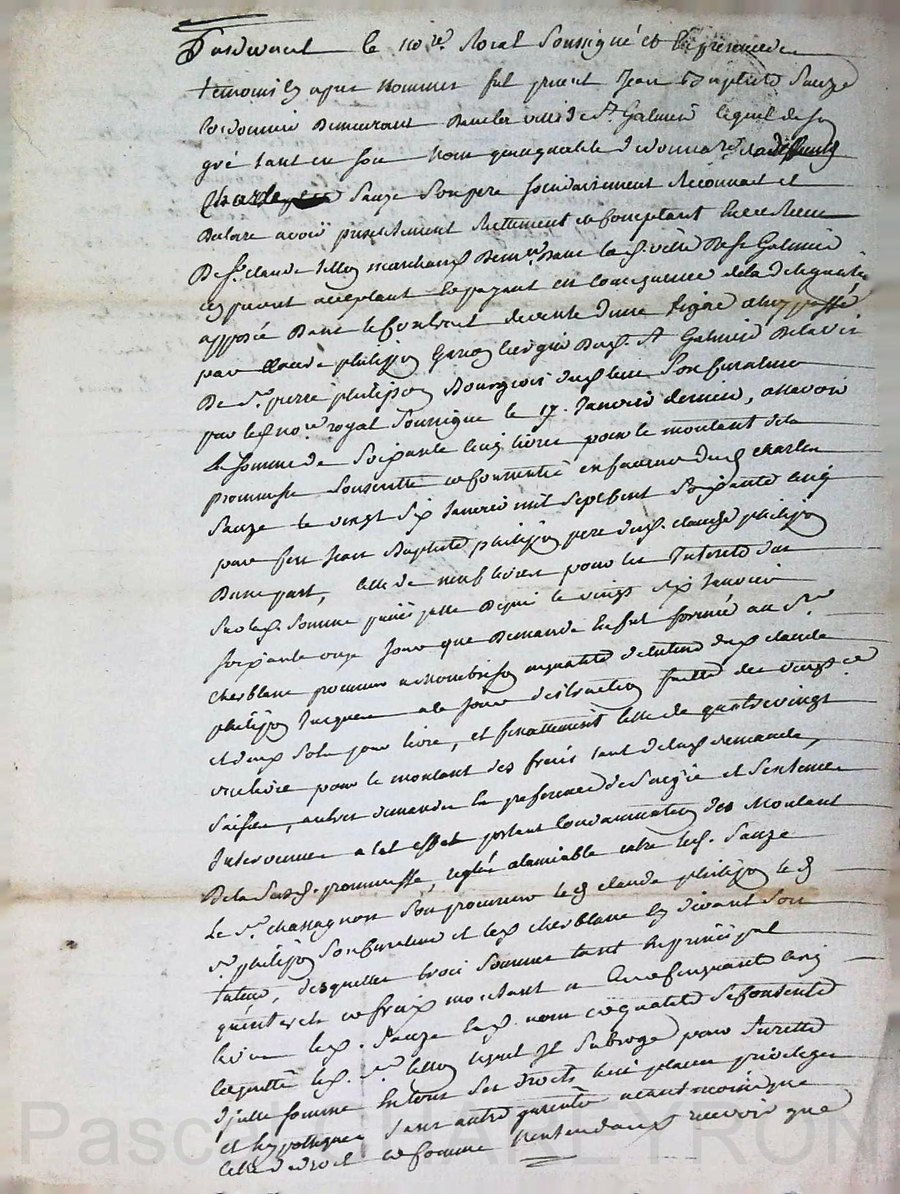 Pardevant le no.re Royal soussigné et En presence de
temoins cy apres nommes fut present Jean Baptiste Sauze
Cordonnier Demeurant Dans la ville de St Galmier lequel de son
gré tant en son nom qu'en qualité d'
Charles Sauze son pere solidairement Reconnait et
Declare avoir presentement Reellement et Comptant Reçu
De Sr Claude marchand Dem.t Dans la d. ville De St Galmier
cy present acceptant et payant en Consequence de la Delegation
apposée Dans le Contrat de vente d'une vigne a luy passé
par Claude philippon Garçon St Galmier De l'avis
De Sr pierre philippon Bourgeois dud. lieu son Curateur
par led. no.re royal soussigné le 17. Janvier dernier, assavoir
La somme de soixante cinq livres pour le montant de la
promesse consentie en faveur dud. Charles
Sauze le vingt six Janvier mil sept cent soixante cinq
par feu Jean Baptiste philippon pere dud. Claude philippon
D'une part, celle de neuf livres pour les Interets de
lad. somme Depuis le vingt six Janvier
soixante onze Jour que Demande En fut formée au Sr
cherblanc procureur a Montbrison en qualité de tuteur dud. Claude
philippon Jusques a ce Jour distraction faitte des vingt.e
et deux sols pour livre, et finallement celle de quatre vingt
une livre pour le montant des frais tant de lad. demande,
saisies, autre demande en preference de saisie et sentence
Intervenue a cet effet portant Condamnation du Montant
De la susd. promesse, reglés a l'amiable entre led. Sauze
Le Sr chassagnon son procureur led. Claude philippon led.
Sr philippon son Curateur et led. cherblanc cy devant son
tuteur, desquelles trois sommes tant En principal
qu'interets et frais montant a Cent cinquante cinq
livres led. Sauze esd. nom et qualité se Contente
et quitte led. Sr lequel Il subroge pour surette
d'icelle somme En tous ses Droits lieu place privileges
et hypotheques sans autre garentie neantmoins que
celle de droit et comme n'entendant recevoir que
Pascal CHAREYRON